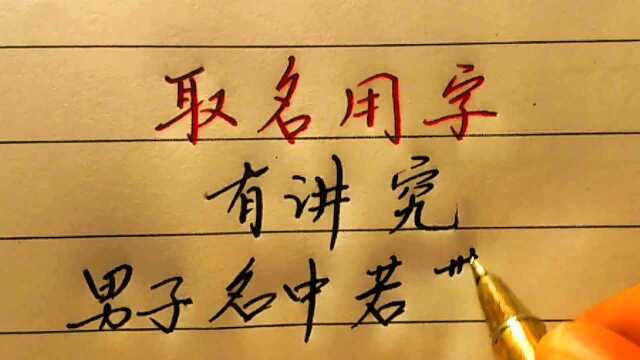 取名用字
有讲究
男子名中若